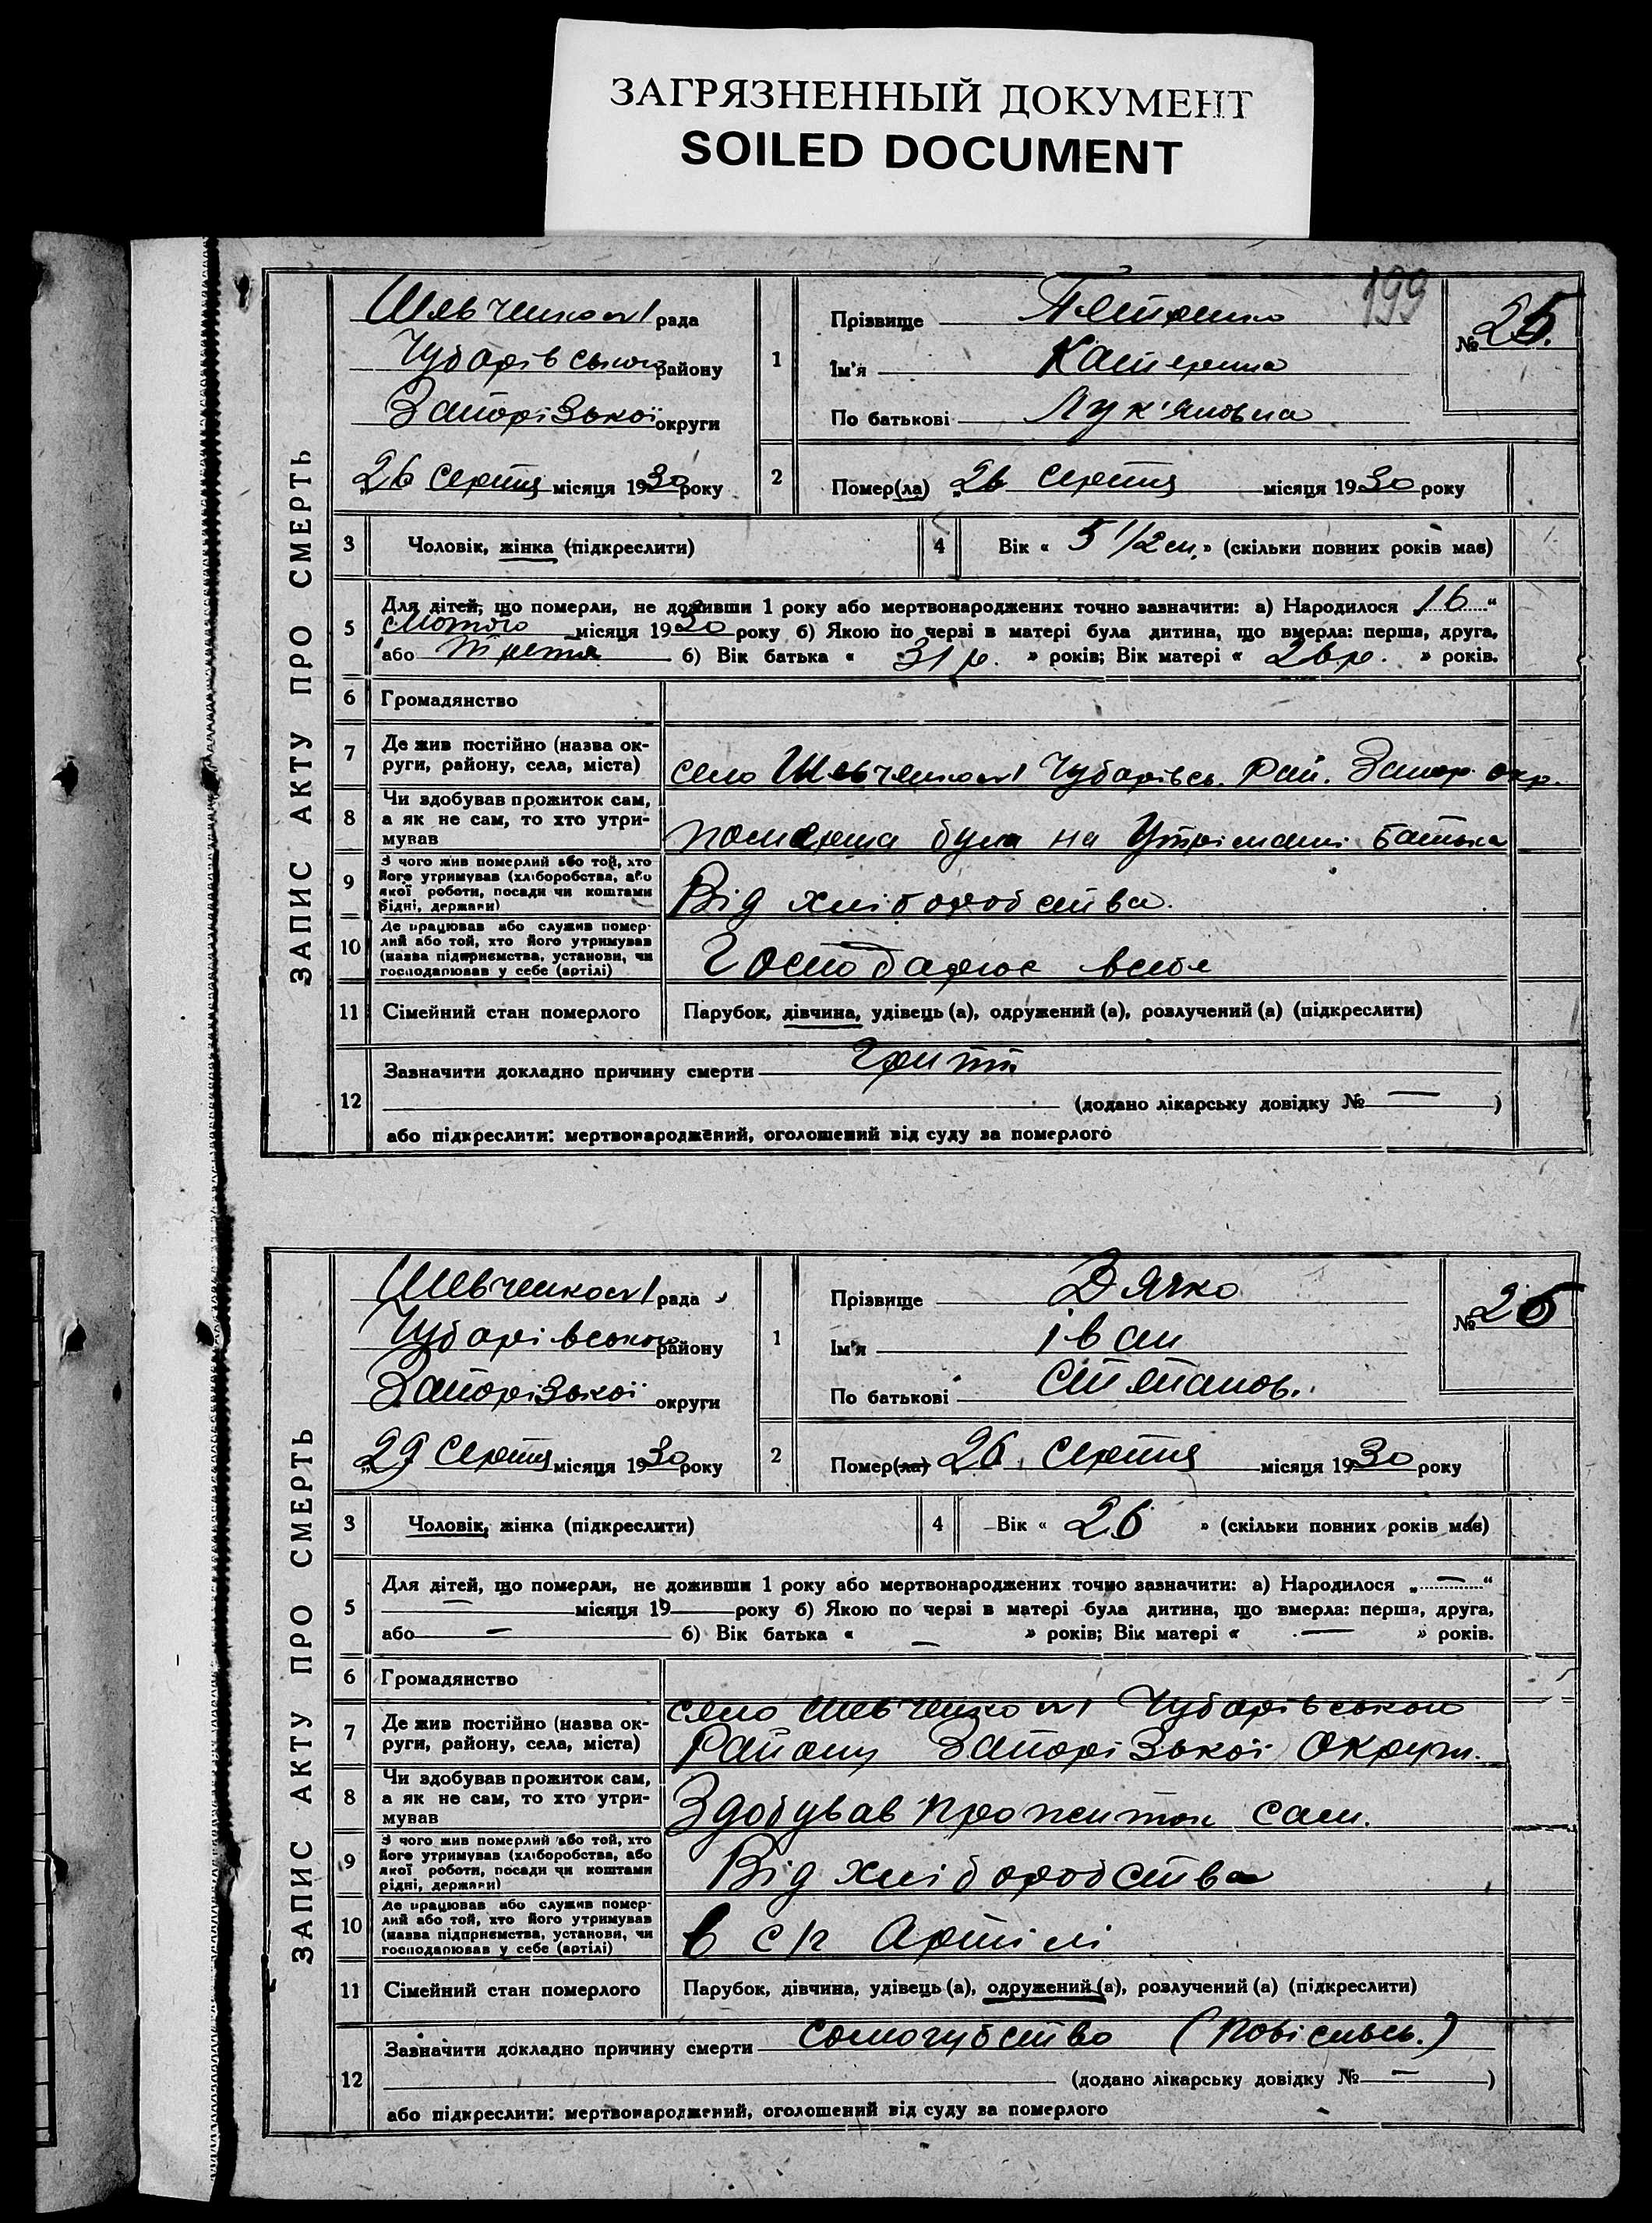 ЗАГРЯЗНЕННЫЙ ДОКУМЕНТ
SOILED DOCUMENT
199
ЗАПИС АКТУ ПРО СМЕРТЬ
Шевченкові рада
Чубарівського району
Запорізької округи
„26 Серпня місяця 1930 року
1
Прізвище Петренко
Ім'я Катерина
По батькові Лук'яновна
№ 25.
2
Помер(ла) „26 Серпня місяця 1930 року
3 Чоловік, жінка (підкреслити)
4 Вік « 5 1/2 м. » (скільки повних років має)
5 Для дітей, що померли, не доживши 1 року або мертвонароджених точно зазначити: а) Народилося „16“
Лютого місяця 1930 року б) Якою по черзі в матері була дитина, що вмерла: перша, друга,
або третя б) Вік батька « 31 р. » років; Вік матері « 26 р. » років.
6 Громадянство
7 Де жив постійно (назва округи, району, села, міста)
село Шевченкові Чубарівсь. Рай. Запор. окр.
8 Чи здобував прожиток сам, а як не сам, то хто утримував
померша була на Утріманні батька
9 З чого жив померлий або той, хто його утримував (хліборобства, або якої роботи, посади чи коштами рідні, держави)
Від хліборобства.
10 Де працював або служив померлий або той, хто його утримував (назва підприємства, установи, чи господарював у себе (артілі)
Господарює всебе
11 Сімейний стан померлого Парубок, дівчина, удівець (а), одружений (а), розлучений (а) (підкреслити)
12 Зазначити докладно причину смерти Грипп
(додано лікарську довідку № — )
або підкреслити: мертвонароджений, оголошений від суду за померлого
ЗАПИС АКТУ ПРО СМЕРТЬ
Шевченкові рада
Чубарівського району
Запорізької округи
„29 Серпня місяця 1930 року
1
Прізвище Дячко
Ім'я Іван
По батькові Степанов.
№ 26
2
Помер(ла) „26 Серпня місяця 1930 року
3 Чоловік, жінка (підкреслити)
4 Вік « 26 » (скільки повних років має)
5 Для дітей, що померли, не доживши 1 року або мертвонароджених точно зазначити: а) Народилося „—“
— місяця 19 року б) Якою по черзі в матері була дитина, що вмерла: перша, друга,
або — б) Вік батька « — » років; Вік матері « — » років.
6 Громадянство
7 Де жив постійно (назва округи, району, села, міста)
село Шевченкові Чубарівського
Району Запорізької Округи.
8 Чи здобував прожиток сам, а як не сам, то хто утримував
Здобував прожиток сам.
9 З чого жив померлий або той, хто його утримував (хліборобства, або якої роботи, посади чи коштами рідні, держави)
Від хліборобства
10 Де працював або служив померлий або той, хто його утримував (назва підприємства, установи, чи господарював у себе (артілі)
в с/г Артілі
11 Сімейний стан померлого Парубок, дівчина, удівець (а), одружений (а), розлучений (а) (підкреслити)
12 Зазначити докладно причину смерти Самогубство (повісивсь.)
(додано лікарську довідку № — )
або підкреслити: мертвонароджений, оголошений від суду за померлого